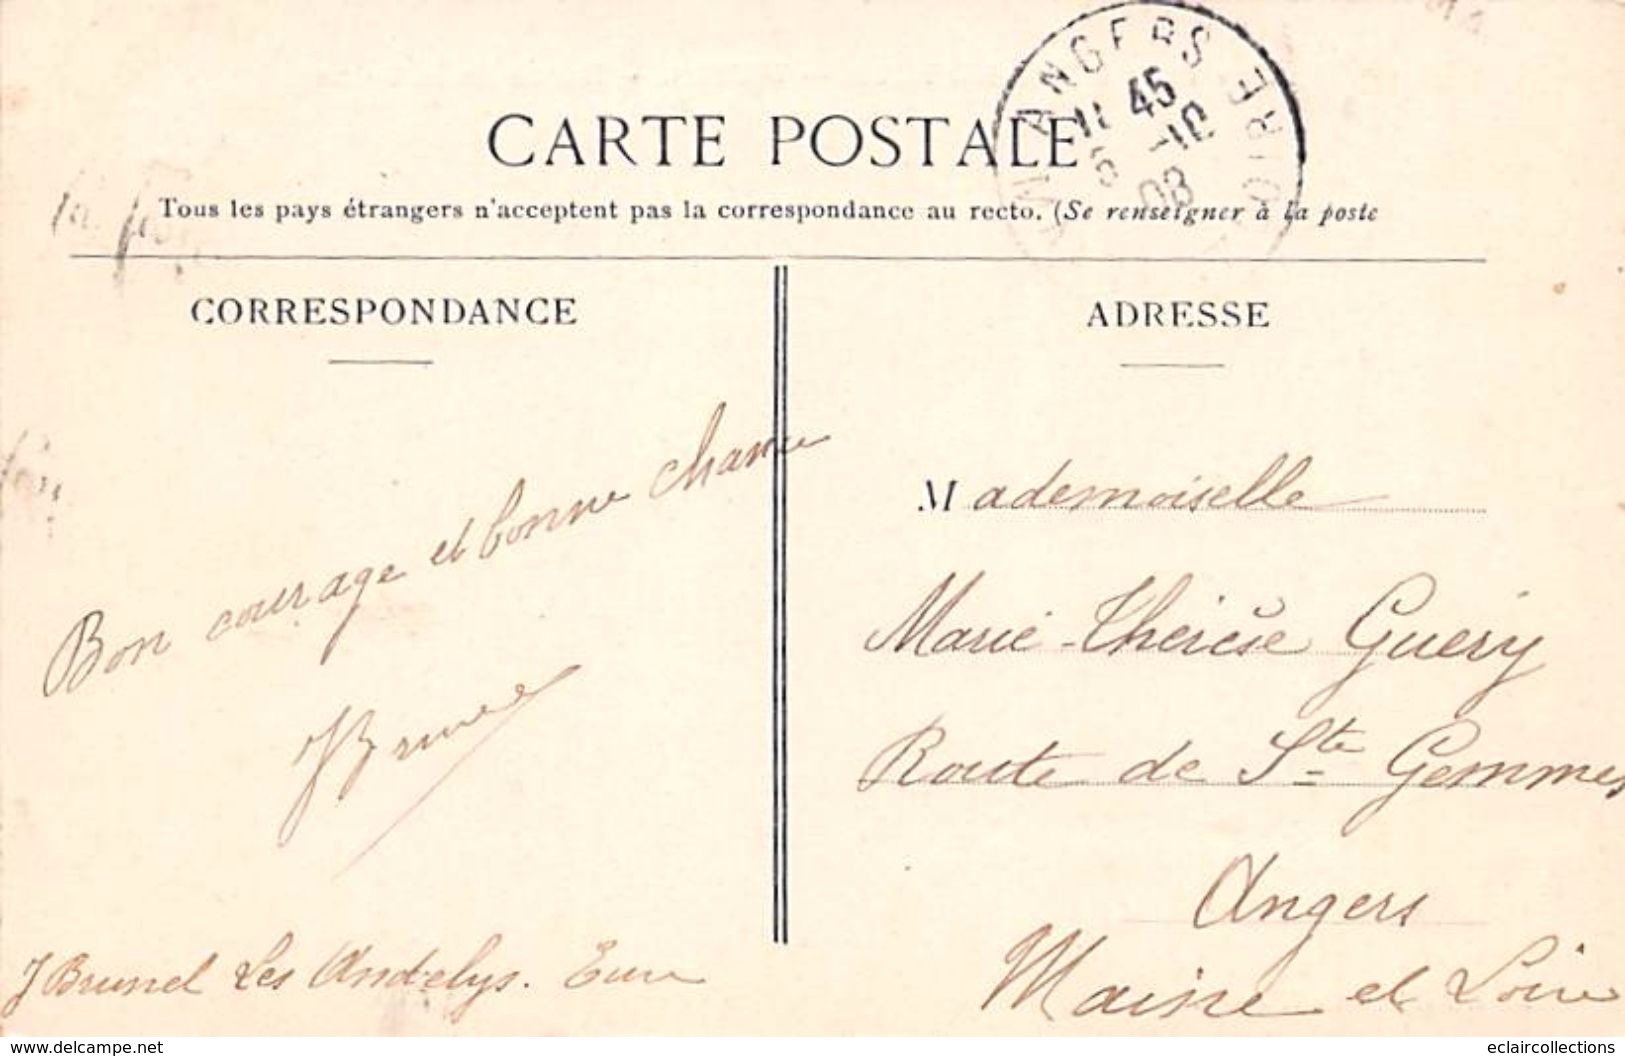 ANGERS GARE
11 45
6 -10
08
CARTE POSTALE
Tous les pays étrangers n'acceptent pas la correspondance au recto. (Se renseigner à la poste
CORRESPONDANCE
Bon courage et bonne chance
JBrunel
J Brunel Les Andelys. Eure
ADRESSE
Mademoiselle
Marie-Thérèse Guéry
Route de Ste Gemmes
Angers
Maine et Loire
www.delcampe.net
eclaircollections